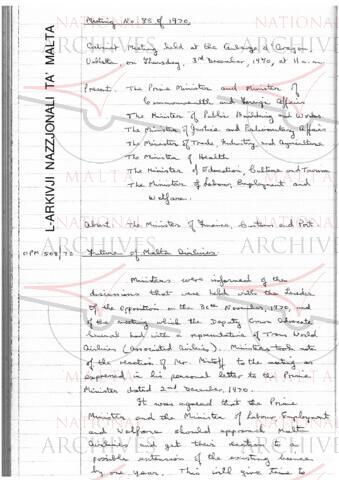 Meeting No: 88 of 1970.
Cabinet Meeting held at the Auberge d'Aragon
Valletta, on Thursday, 3rd December, 1970, at 11 a.m.
Present. The Prime Minister and Minister of
Commonwealth and Foreign Affairs
The Minister of Public Building and Works
The Minister of Justice and Parliamentary Affairs
The Minister of Trade, Industry and Agriculture
The Minister of Health
The Minister of Education, Culture and Tourism
The Minister of Labour, Employment and
Welfare.
Absent. The Minister of Finance, Customs and Port.
OPM/508/70 Future of Malta Airlines
Ministers were informed of the
discussions that were held with the Leader
of the Opposition on the 30th November, 1970, and
of the meeting which the Deputy Crown Advocate
General had with a representative of Trans World
Airlines (Associated Airlines). Ministers took note
of the reaction of Mr. Mintoff to the meeting as
expressed in his personal letter to the Prime
Minister dated 2nd December, 1970.
It was agreed that the Prime
Minister and the Minister of Labour, Employment
and Welfare should approach Malta
Airlines and get their reaction to a
possible extension of the existing licence
by one year. This will give time to
L-ARKIVJI NAZZJONALI TA' MALTA
NATIONAL
ARCHIVES
MALTA